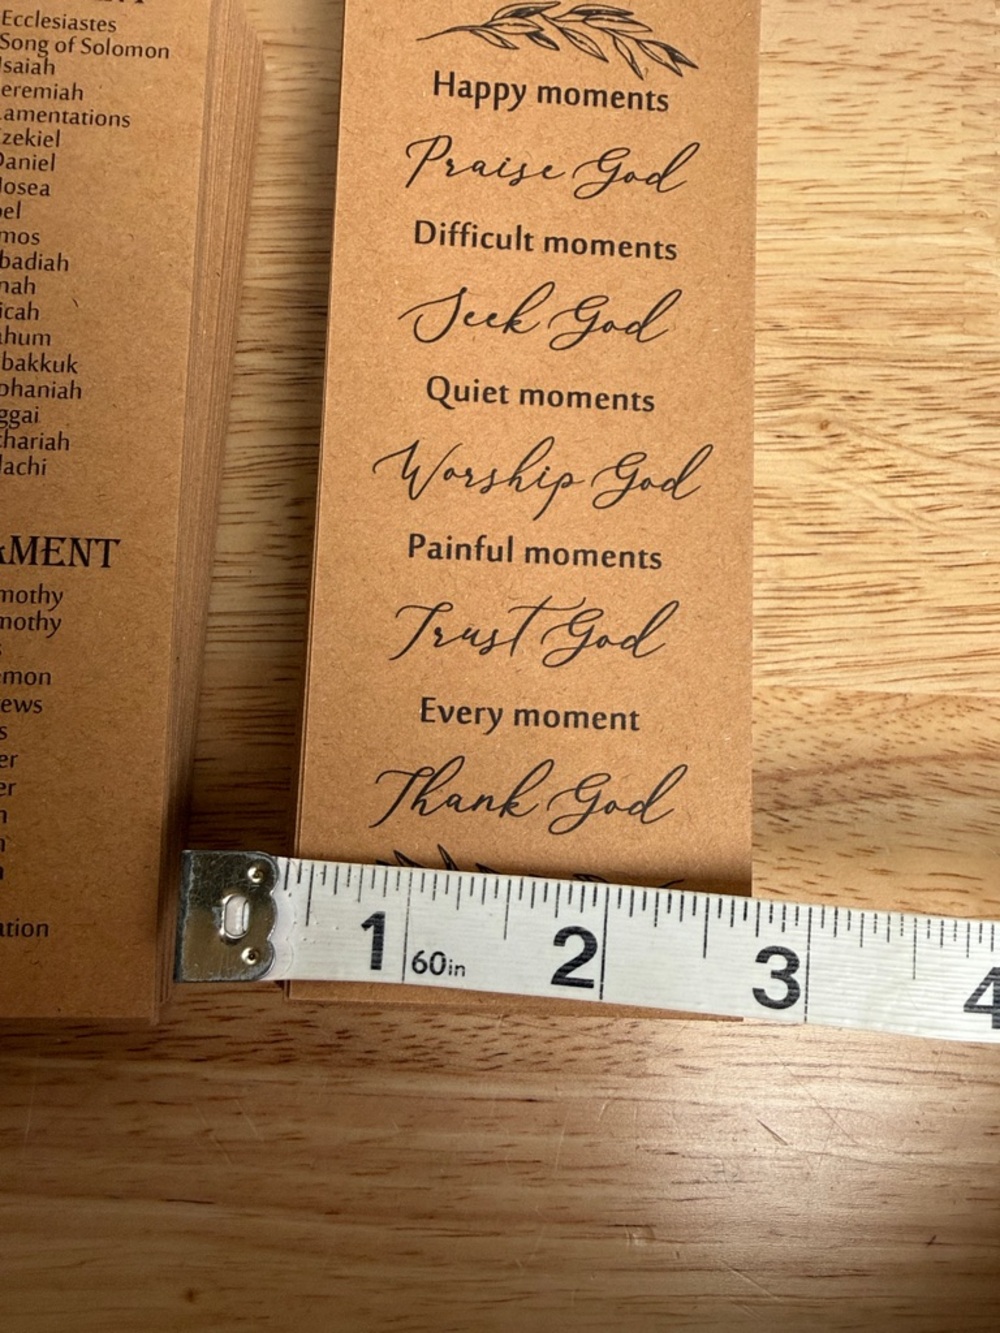 Ecclesiastes
Song of Solomon
Isaiah
eremiah
amentations
zekiel
Daniel
Hosea
oel
mos
badiah
nah
icah
ahum
bakkuk
phaniah
ggai
chariah
lachi
MENT
mothy
mothy
s
emon
ews
s
er
er
n
n
n
ation
Happy moments
Praise God
Difficult moments
Seek God
Quiet moments
Worship God
Painful moments
Trust God
Every moment
Thank God
1 60in 2 3 4